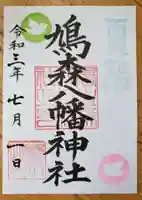 鳩森八幡神社
令和三年 七月 一日